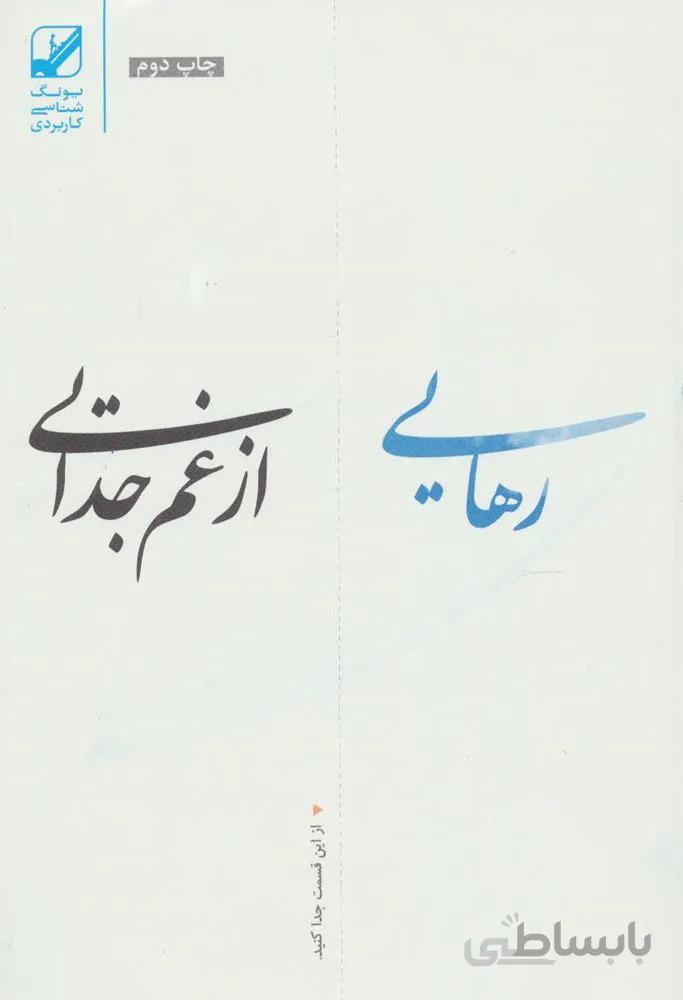 یونگ
شناسی
کاربردی
چاپ دوم
رهایی
از غم جدایی
از این قسمت جدا کنید.
بابساطی